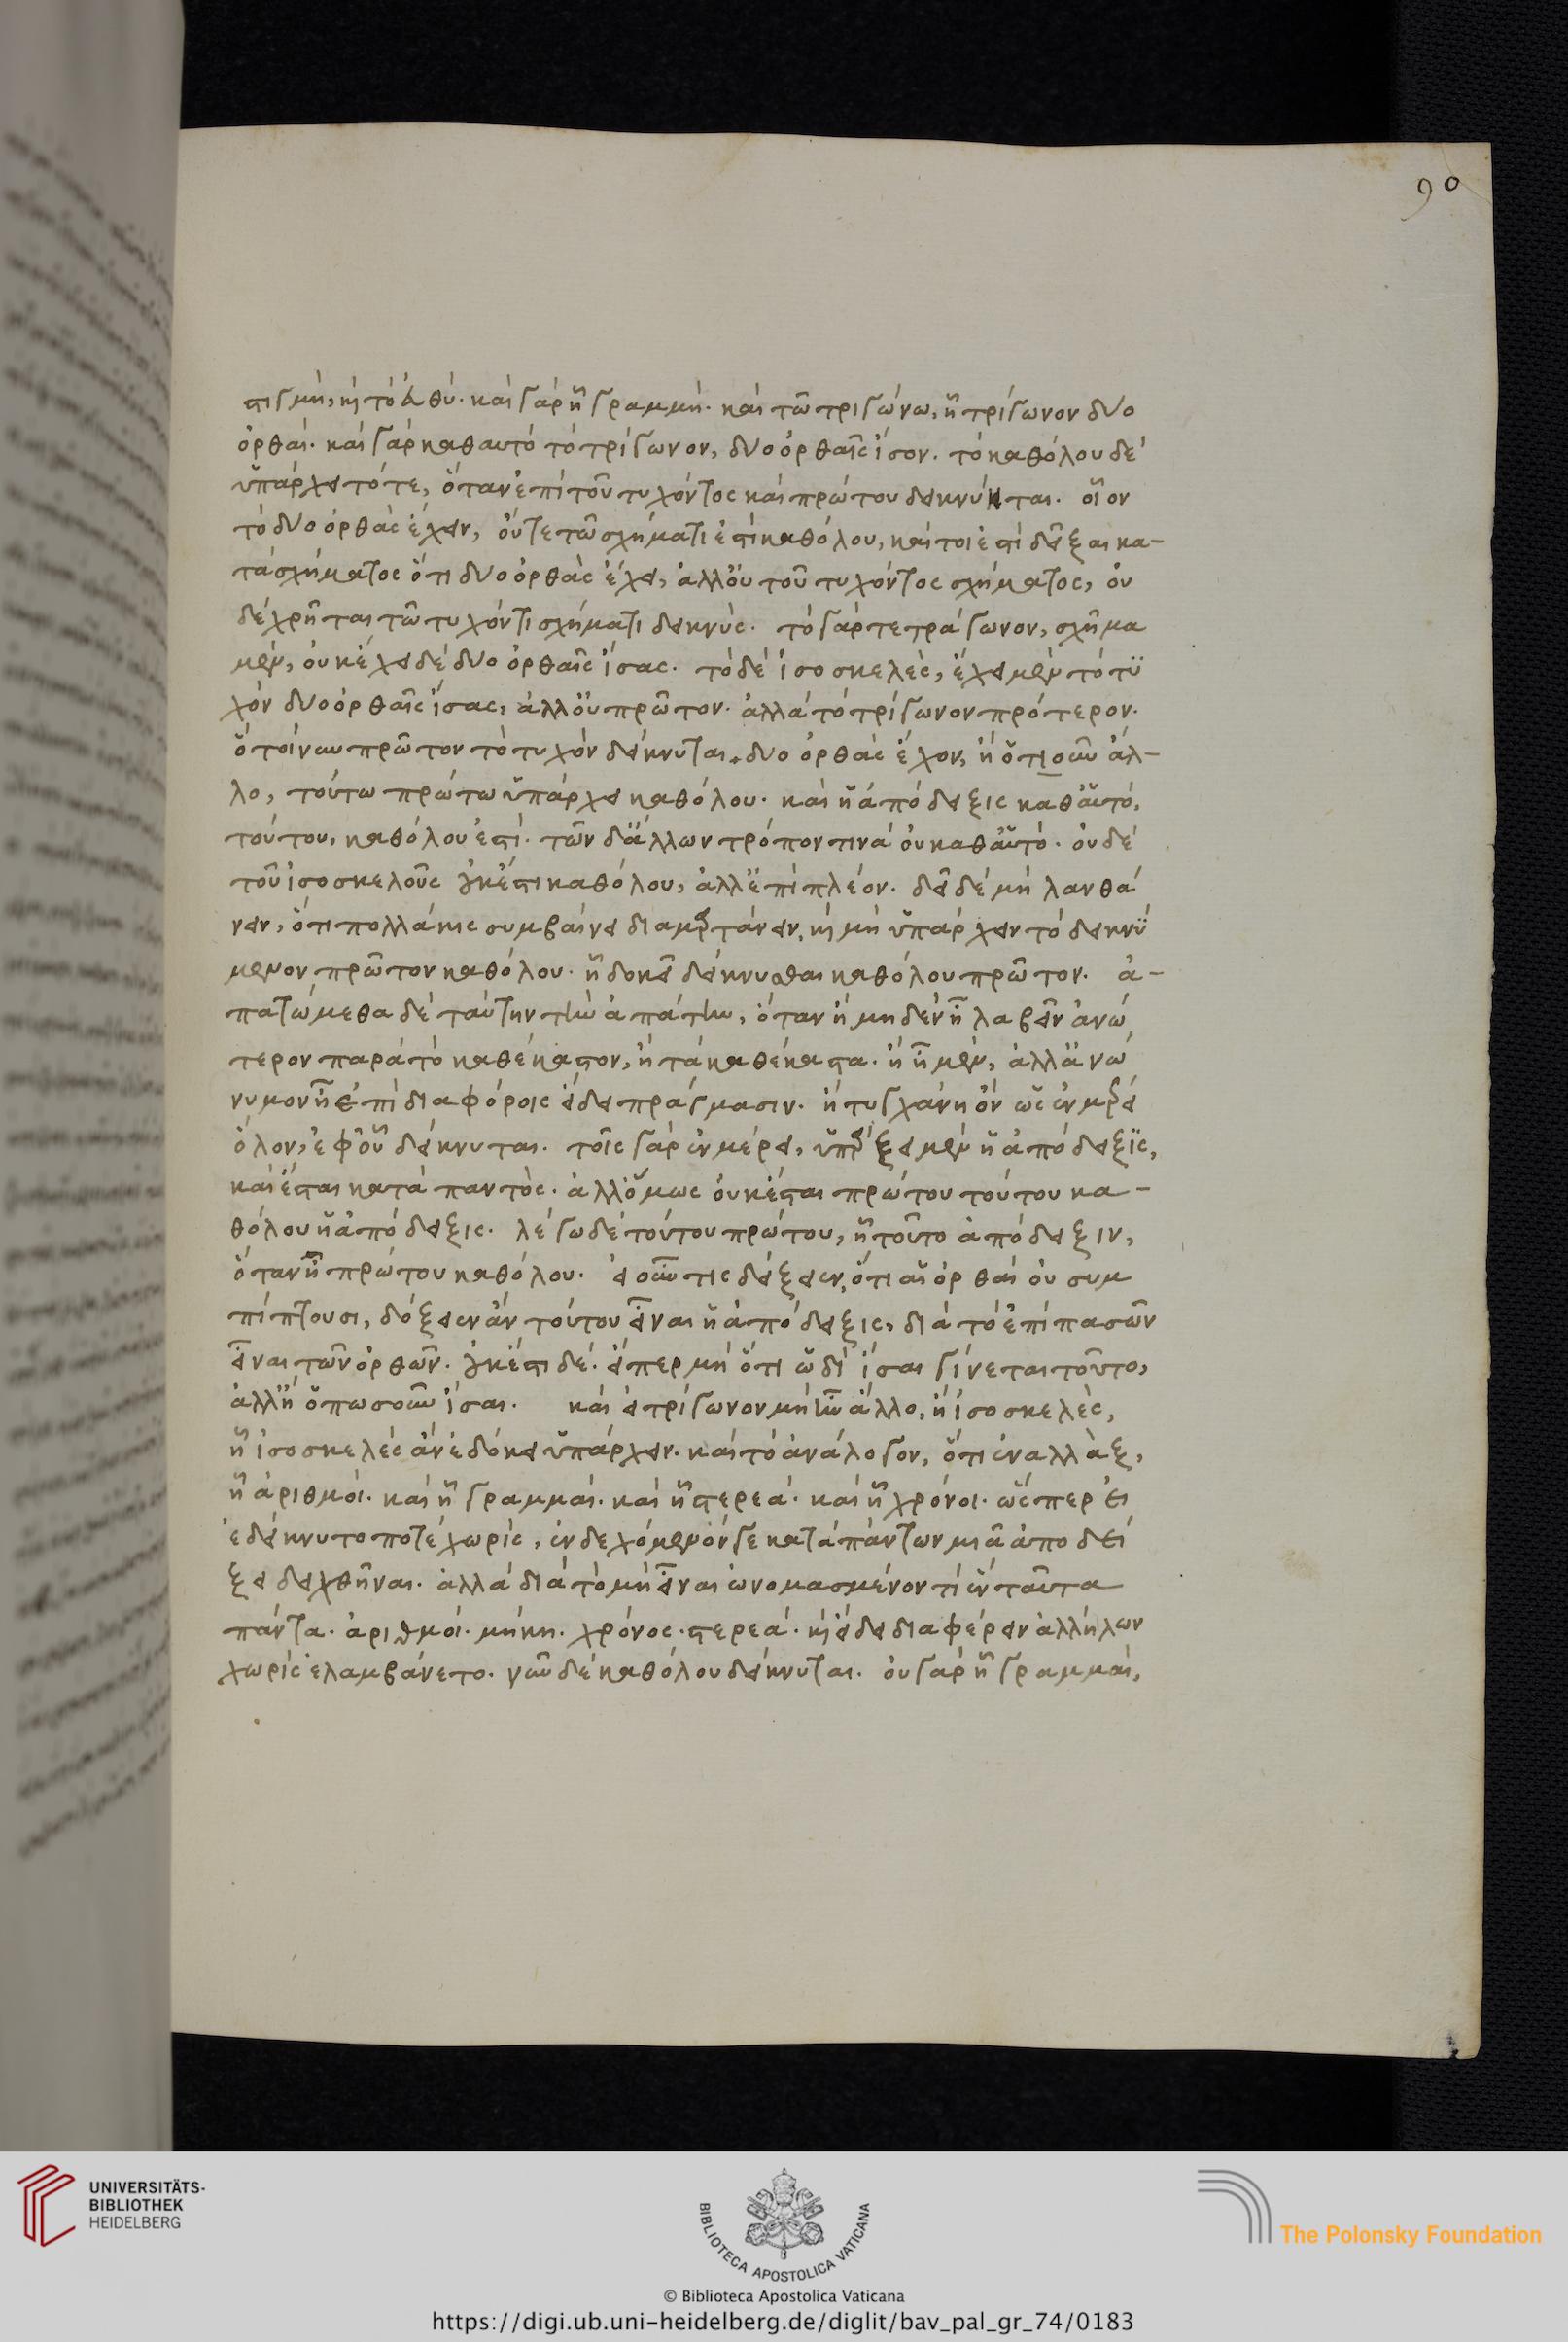 90
στιγμή, καὶ τὸ εὐθύ. καὶ γὰρ ἧ γραμμή. καὶ τῶ τριγώνω, ἧ τρίγωνον δύο
ὀρθαί. καὶ γὰρ καθαυτὸ τὸ τρίγωνον, δυο ὀρθαῖς ἴσον. τὸ καθόλου δὲ
ὑπάρχει τότε, ὅταν ἐπὶ τοῦ τυχόντος καὶ πρώτου δεικνύηται. οἷον
τὸ δυο ὀρθὰς ἔχειν, οὔτε τῶ σχήματι ἐστὶ καθόλου, καίτοι ἐστὶ δεῖξαι κα-
τὰ σχήματος ὅτι δυο ὀρθὰς ἔχει, ἀλλ' οὐ τοῦ τυχόντος σχήματος, οὐ
δὲ χρῆται τῶ τυχόντι σχήματι δεικνύς. τὸ γὰρ τετράγωνον, σχῆμα
μέν, οὐκ ἔχει δὲ δυο ὀρθαῖς ἴσας. τὸ δὲ ἰσοσκελὲς, ἔχει μὲν τὸ τυ
χὸν δυο ὀρθαῖς ἴσας, ἀλλ' οὐ πρῶτον. ἀλλὰ τὸ τρίγωνον πρότερον.
ὃ τοίνυν πρῶτον τὸ τυχὸν δείκνυται δυο ὀρθὰς ἔχον, ἢ ὁτιοῦν ἄλ-
λο, τούτω πρώτω ὑπάρχει καθόλου. καὶ ἡ ἀπόδειξις καθ' αὑτό,
τούτου, καθόλου ἐστί. τῶν δ' ἄλλων τρόπον τινὰ οὐ καθ' αὑτό. οὐ δὲ
τοῦ ἰσοσκελοῦς οὐκ ἔστι καθόλου, ἀλλ' ἐπὶ πλέον. δεῖ δὲ μὴ λανθά
νειν, ὅτι πολλάκις συμβαίνει διαμαρτάνειν, καὶ μὴ ὑπάρχειν τὸ δεικνύ
μενον πρῶτον καθόλου. ἧ δοκεῖ δείκνυσθαι καθόλου πρῶτον. ἀ-
πατώμεθα δὲ ταύτην τὴν ἀπάτην, ὅταν ἢ μηδὲν ἦ λαβεῖν ἀνώ
τερον παρὰ τὸ καθέκαστον, ἢ τὰ καθέκαστα. ἢ ἦ μὲν, ἀλλ' ἀνώ
νυμον ἦ ἐπὶ διαφόροις εἴδει πράγμασιν. ἢ τυγχάνη ὂν ὡς ἐν μέρει
ὅλον, ἐφ' οὗ δείκνυται. τοῖς γὰρ ἐν μέρει, ὑπάρξει μὲν ἡ ἀπόδειξις,
καὶ ἔσται κατὰ παντός. ἀλλ' ὅμως οὐκ ἔσται πρώτου τούτου κα-
θόλου ἡ ἀπόδειξις. λέγω δὲ τούτου πρώτου, ἧ τοῦτο ἀπόδειξιν,
ὅταν ἦ πρώτου καθόλου. εἰ οὖν τις δείξειεν, ὅτι αἱ ὀρθαὶ οὐ συμ
πίπτουσι, δόξειεν ἂν τούτου εἶναι ἡ ἀπόδειξις, διὰ τὸ ἐπὶ πασῶν
εἶναι τῶν ὀρθῶν. οὐκ ἔστι δέ. εἴπερ μὴ ὅτι ὡδὶ ἴσαι γίνεται τοῦτο,
ἀλλ' ἧ ὁπωσοῦν ἴσαι. καὶ εἰ τρίγωνον μὴ ἦν ἄλλο, ἢ ἰσοσκελὲς,
ἧ ἰσοσκελὲς ἂν ἐδόκει ὑπάρχειν. καὶ τὸ ἀνάλογον, ὅτι ἐναλλὰξ,
ἧ ἀριθμοί. καὶ ἧ γραμμαί. καὶ ἧ στερεά. καὶ ἧ χρόνοι. ὥσπερ ἔτι
ἐδείκνυτο ποτὲ χωρὶς, ἐνδεχόμενόν γε κατὰ πάντων μιᾶ ἀποδεί
ξει δειχθῆναι. ἀλλὰ διὰ τὸ μὴ εἶναι ὠνομασμένον τί ἓν ταῦτα
πάντα. ἀριθμοί. μήκη. χρόνος. στερεά. καὶ εἴδει διαφέρειν ἀλλήλων
χωρὶς ἐλαμβάνετο. νῦν δὲ καθόλου δείκνυται. οὐ γὰρ ἧ γραμμαὶ,
UNIVERSITÄTS-
BIBLIOTHEK
HEIDELBERG
BIBLIOTECA APOSTOLICA VATICANA
The Polonsky Foundation
© Biblioteca Apostolica Vaticana
https://digi.ub.uni-heidelberg.de/diglit/bav_pal_gr_74/0183